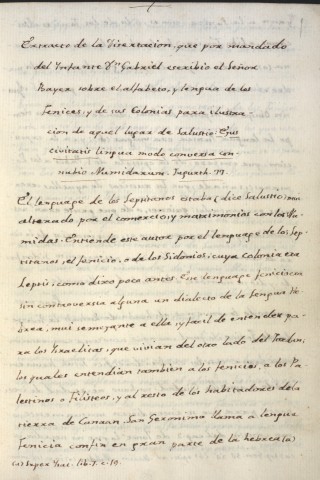 Extracto de la Disertacion, que por mandado
del Infante Dn. Gabriel escribio el Señor
Bayer sobre el alfabeto, y lengua de los
Fenices, y de sus Colonias para ilustra-
cion de aquel lugar de Salustio: Ejus
civitatis lingua modo conversa con-
nubio Numidarum. Jugurth. 77.
El lenguage de los Leptitanos estaba (dice Salustio) mui
alterado por el comercio, y matrimonios con los Nu-
midas. Entiende este autor por el lenguage de los Lep-
titanos, el fenicio, o de los Sidonios, cuya colonia era
Leptis, como dixo poco antes. Ese lenguage fenicio era
sin controversia alguna un dialecto de la lengua He-
brea, mui semejante a ella, y facil de entender pa-
ra los Israelitas, que vivian del otro lado del Jordan,
los quales entendian tambien a los fenicios, a los Pa-
lestinos o Filisteos, y al resto de los habitadores de la
tierra de Canaan. San Geronimo llama a lengua
Fenicia confin en gran parte de la hebrea (a)
(a) Super Isai. lib. 7. c. 19.